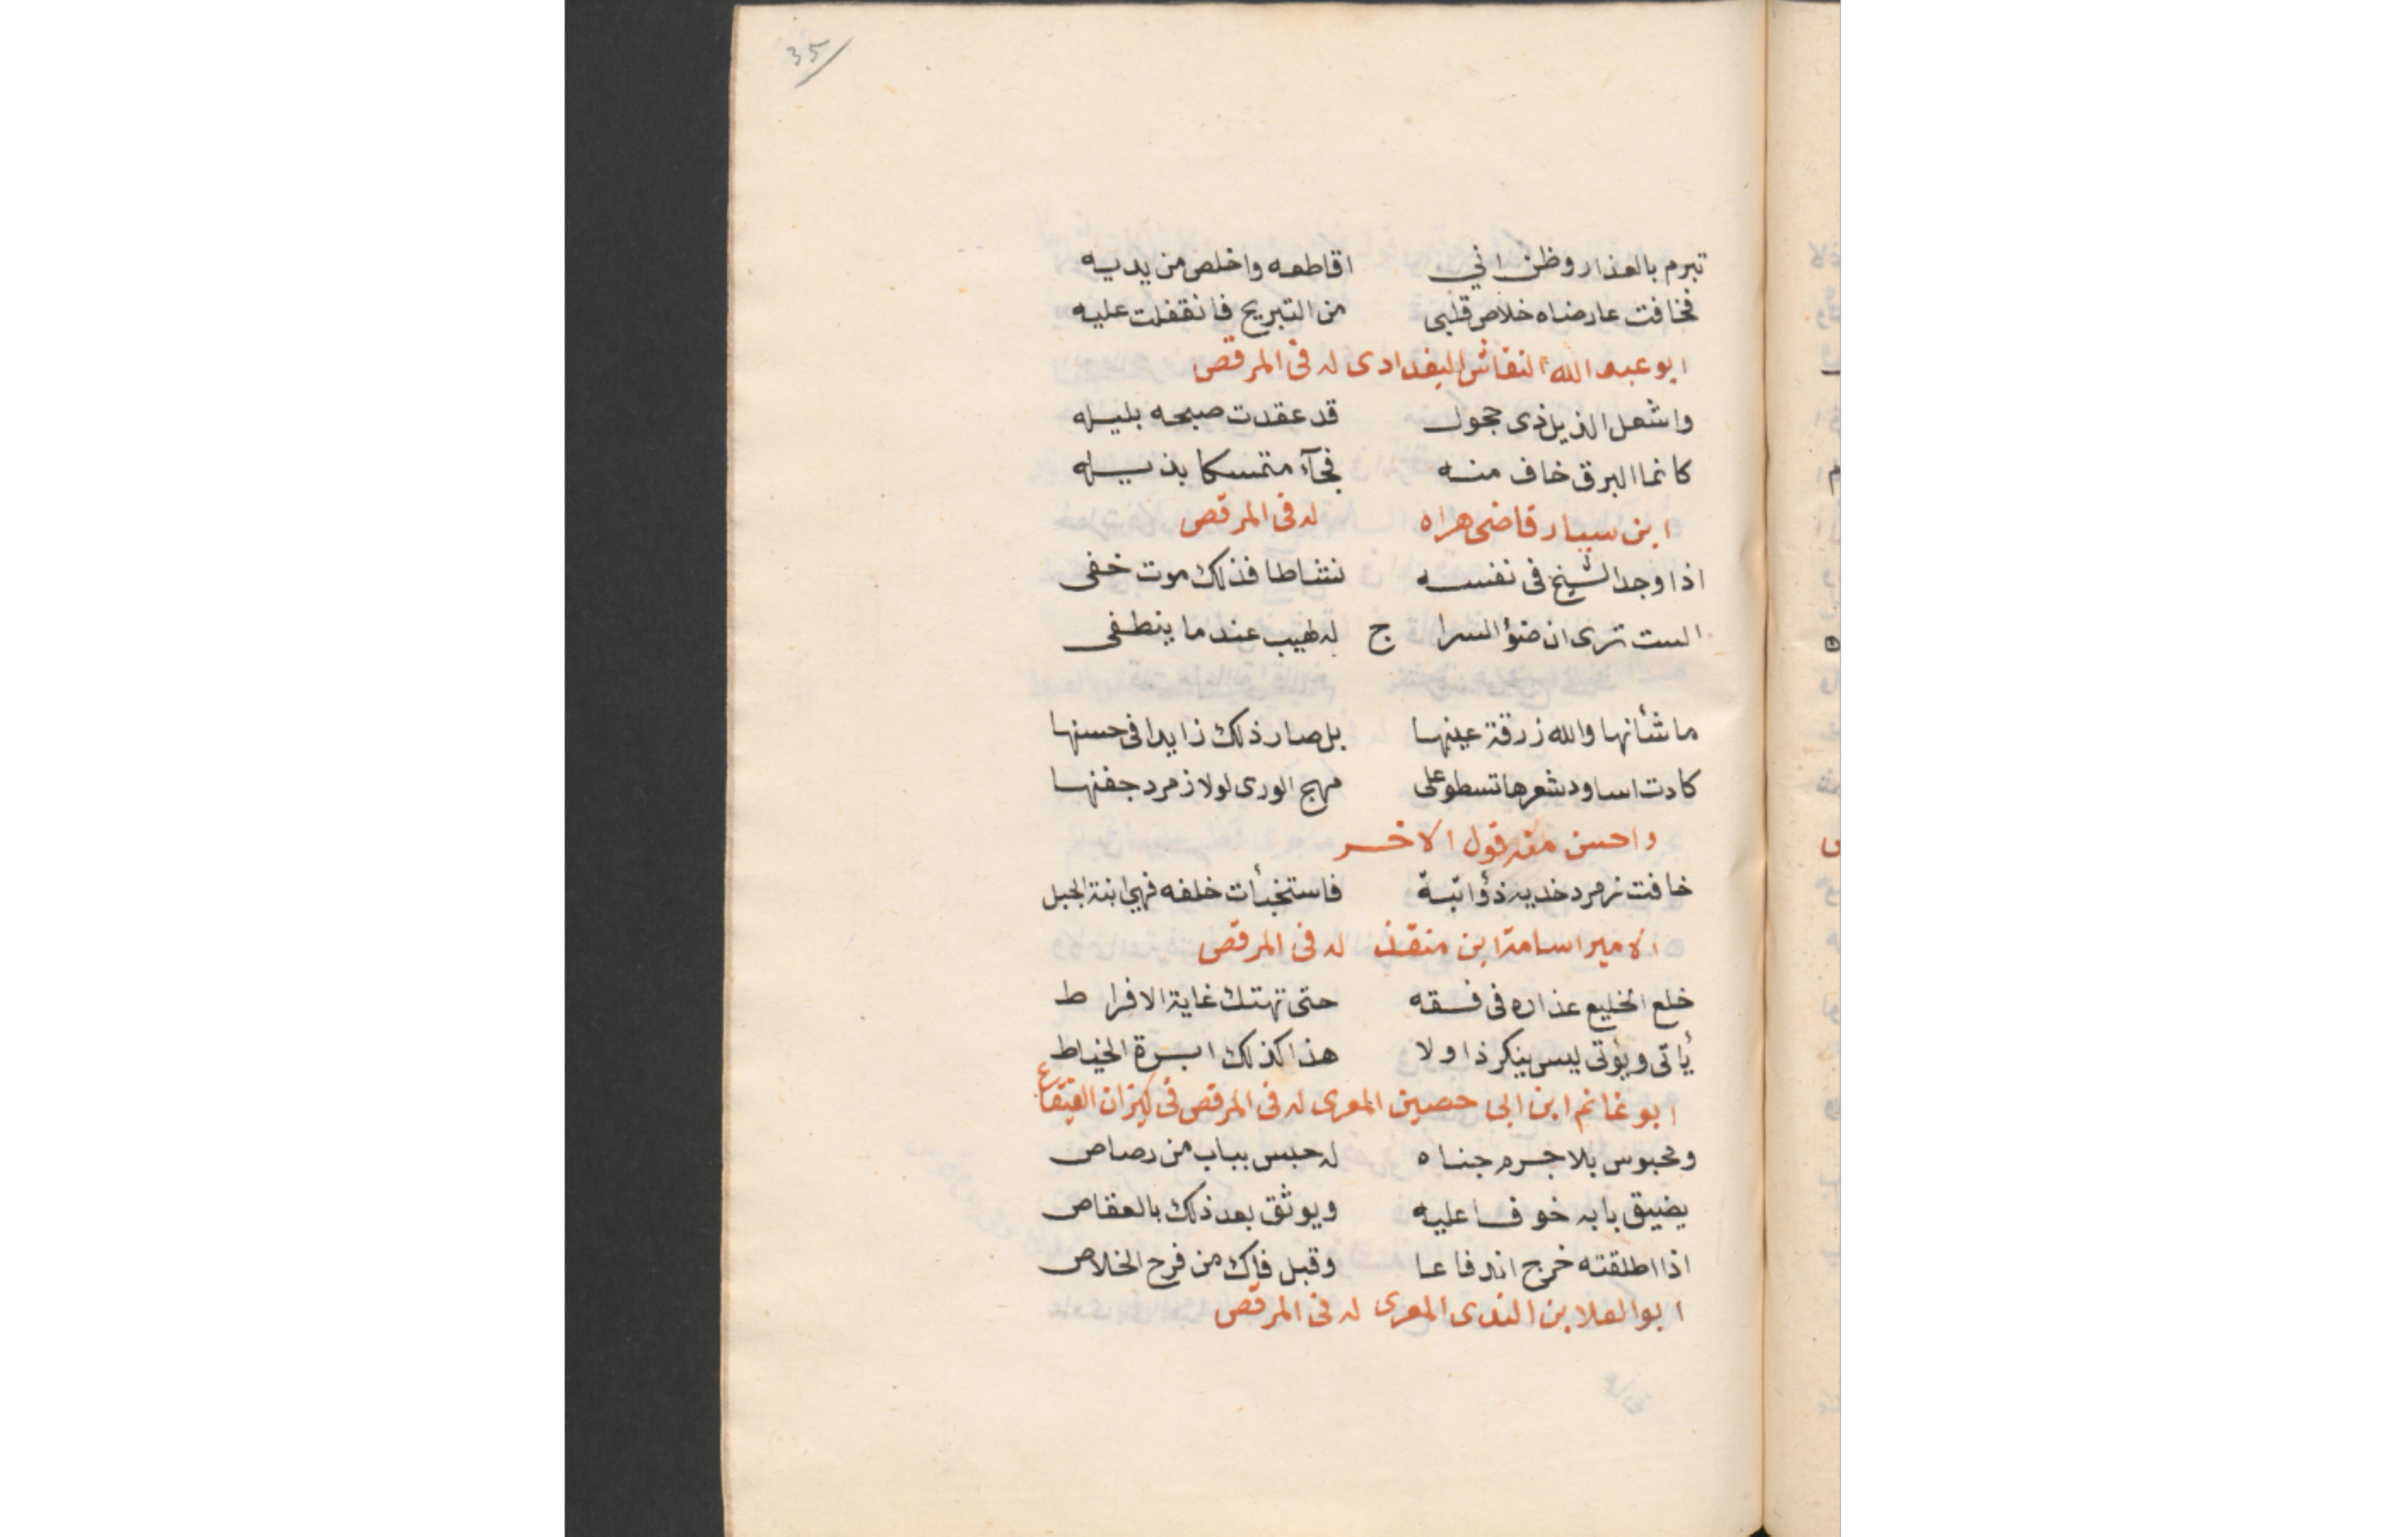 35
تبرم بالعذار وظن اني اقاطعه واخلص من يديه
فخافت عارضاه خلاص قلبى من التبريح فانقفلت عليه
ابو عبد الله النقاش البغدادى له فى المرقص
واشعل الذيل ذى حجول قد عقدت صبحه بليله
كانما البرق خاف منه فجآء متمسكا بذيله
ابن سيار قاضى هراه له فى المرقص
اذا وجد الشيخ فى نفسه نشاطا فذلك موت خفى
الست ترى ان ضؤ السراج له لهيب عند ما ينطفى
ما شأنها والله زرقة عينها بل صار ذلك زايدا فى حسنها
كادت اساود شعرها تسطو على مهج الورى لولا زمرد جفنها
واحسن منه قول الاخر
خافت زمرد خديه ذؤابتة فاستخبأت خلفه فهي ابنة الجبل
الامير اسامة ابن منقذ له فى المرقص
خلع الخليع عذاره فى فسقه حتى تهتك غاية الافراط
يأتى ويؤتى ليس ينكر ذا ولا هذا كذلك ابرة الخياط
ابو غانم ابن ابى حصين المعرى له فى المرقص فى كيزان الفقاع
ومحبوس بلا جرم جناه له حبس بباب من رصاص
يضيق بابه خوفا عليه ويوثق بعد ذلك بالعفاص
اذا اطلقته خرج اندفاعا وقبل فاك من فرح الخلاص
ابو العلا بن الندى المعرى له فى المرقص